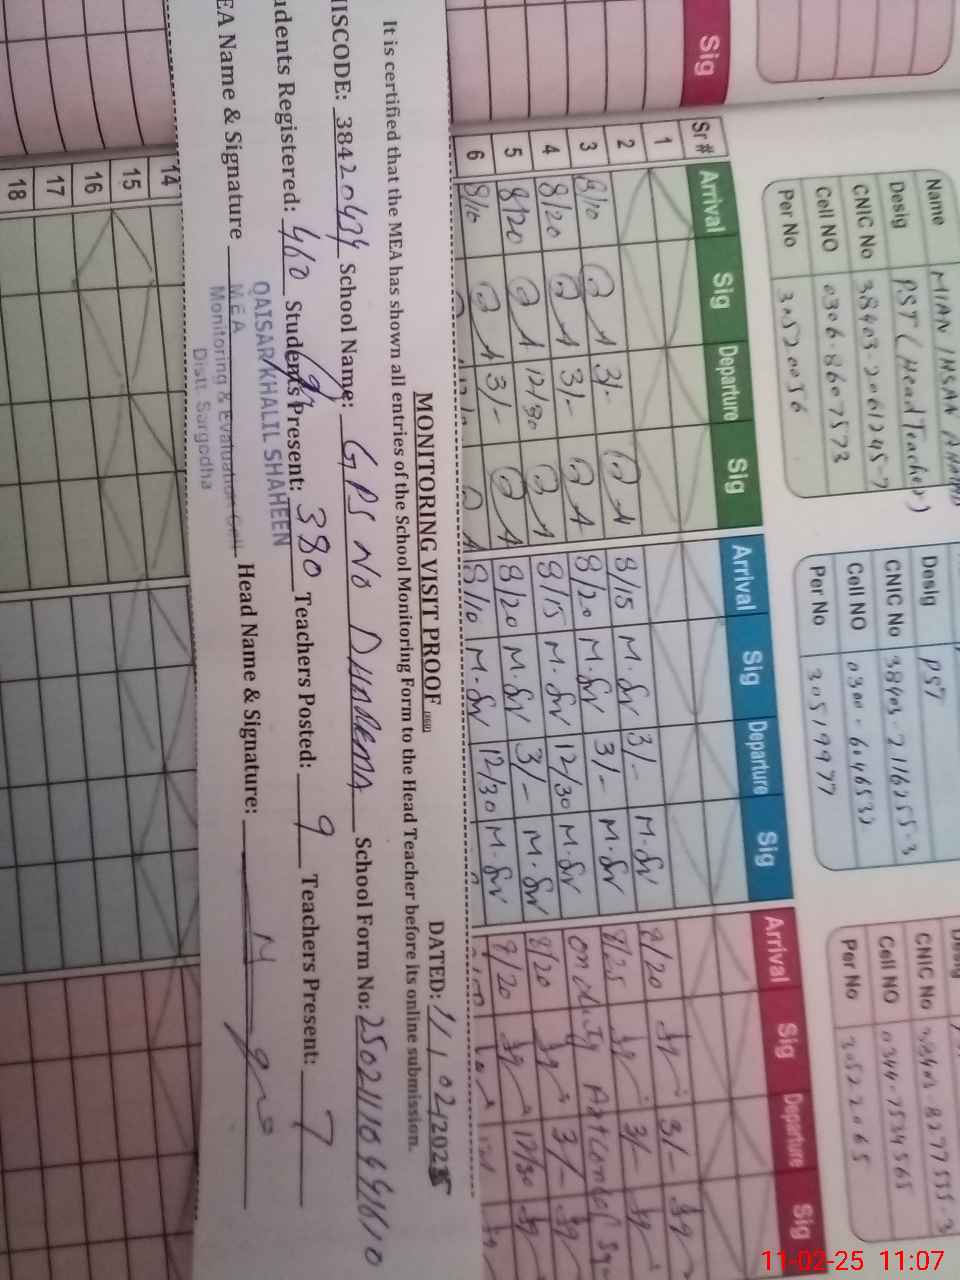 Name MIAN IHSAN AHMAD
Desig PST (Head Teacher)
CNIC No 38403-2061245-7
Cell NO 0306-8607573
Per No 30520056
Desig PST
CNIC No 38403-2116255-3
Cell NO 0300-6046532
Per No 30519977
Desig
CNIC No 38401-8277535-3
Cell NO 0344-7534565
Per No 30522065
Sig
Sr# Arrival Sig Departure Sig Arrival Sig Departure Sig Arrival Sig Departure Sig
1
2 8/15 M. 3/- M. 8/20 3/-
3 8/10 3/- 8/20 M. 3/- M. 8/25 3/-
4 8/20 3/- 8/15 M. 12/30 M. on duty
5 8/20 12/30 8/20 M. 3/- M. 8/20 3/-
6 8/10 3/- 8/10 M. 12/30 M. 8/20 12/30
MONITORING VISIT PROOF
DATED: 11/02/2025
It is certified that the MEA has shown all entries of the School Monitoring Form to the Head Teacher before its online submission.
ISCODE: 38420434 School Name: GPS NO DHAREMA School Form No:
dents Registered: 460 Students Present: 380 Teachers Posted: 9 Teachers Present: 7
EA Name & Signature Head Name & Signature:
QAISAR KHALIL SHAHEEN
M.E.A
Monitoring & Evaluation Cell
Distt. Sargodha
14
15
16
17
18
11-02-25 11:07